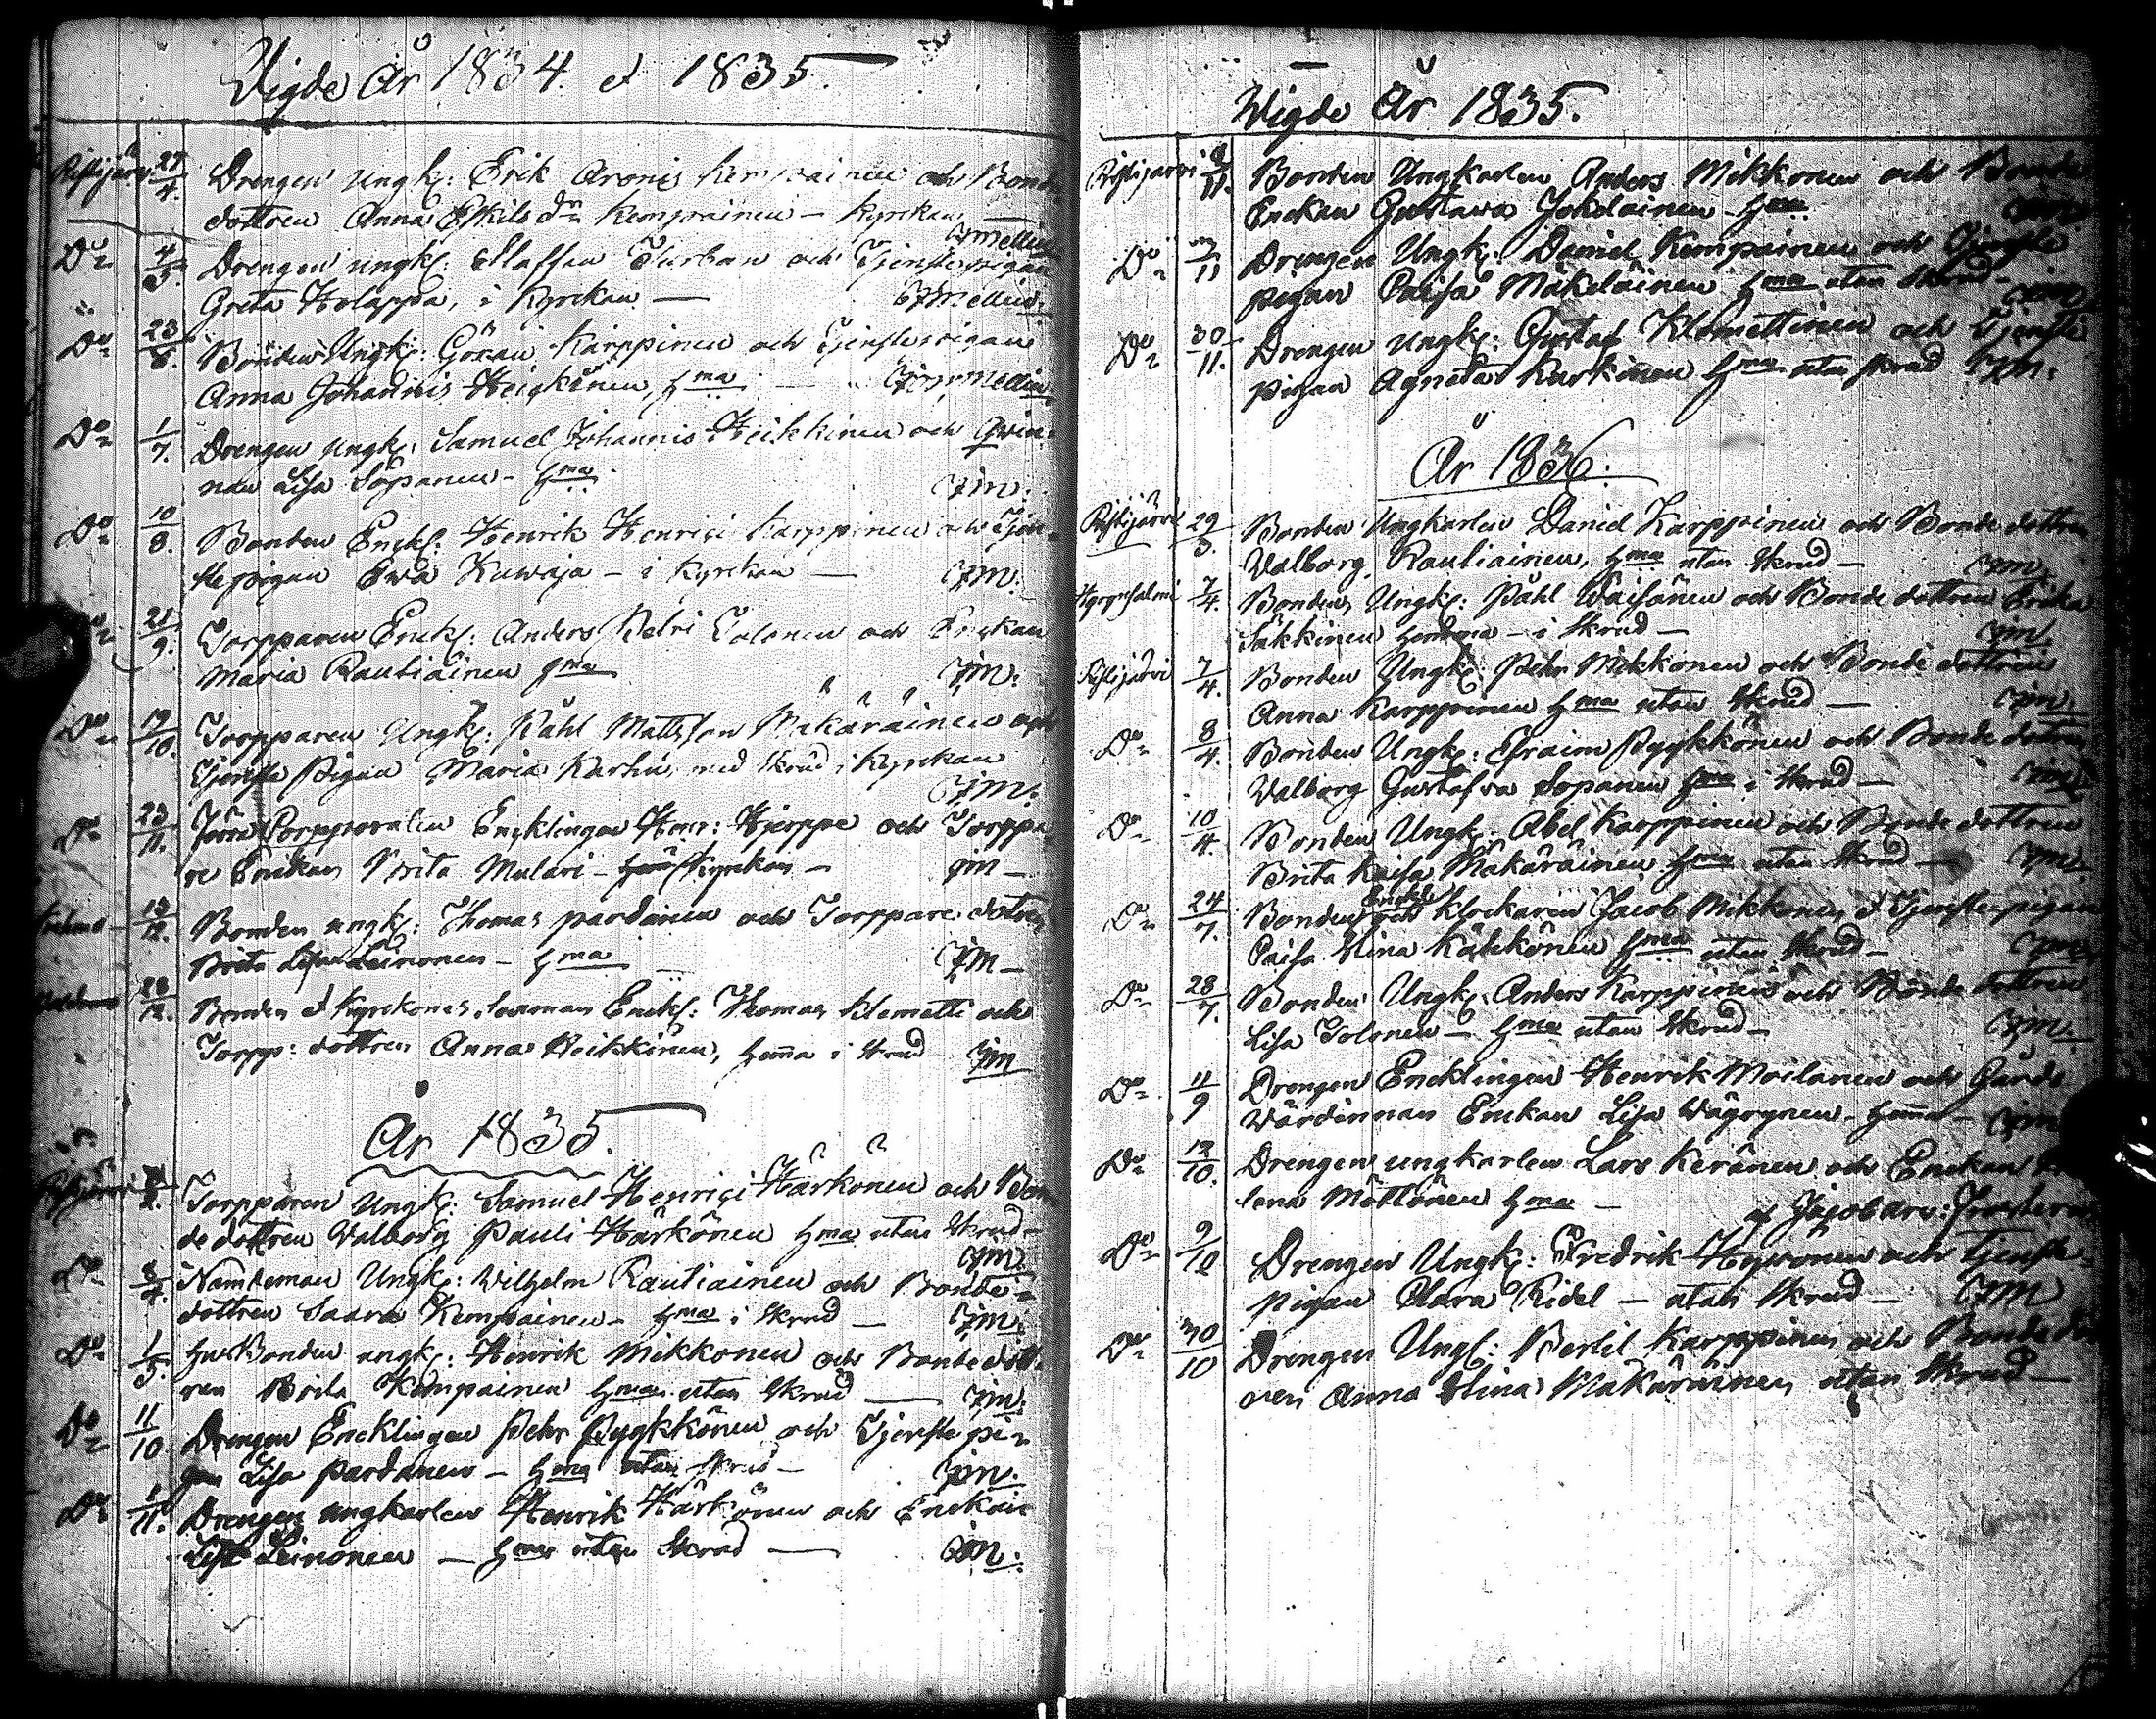 Vigde År 1834. et 1835.
Ristijärvi 27/4. Drengen Ungk: Erik Aronis Kempainen och Bonde
dottren Anna Eskils dr Kempainen – Kyrckan
CJMellin
Do 4/5. Drengen Ungk: Staffan Turban och Tjenstepigan
Greta Holappa, i Kyrckan — CJMellin.
Do 23/6. Bonden Ungk: Göran Karppinen och Tjenstepigan
Anna Johannis Heickinen, hma — CJMellin
Do 1/7. Drengen Ungk: Samuel Johannis Heikkinen och Qwin-
nan Lisa Sopanen – hma CJM.
Do 10/8. Bonden Enckl: Henrik Henrici Karppinen och Tjen-
stepigan Ewa Kuwaja – i Kyrckan — CJM.
Do 21/9. Torpparen Enckl: Anders Petri Tolonen och Enckan
Maria Rautiainen hma CJM.
Do 19/10. Torpparen Ungk: Påhl Mattsson Mäkäräinen och
Tjenste Pigan Maria Karhu, med Skrud i Kyrckan
CJM.
Do 23/11. Encklingen Henr: Hjerppe och Torppa-
re Enckan Brita Mulari – Kyrckan – CJM –
13/12. Bonden Ungk: Thomas Pardanen och Torppare dottren
Brita Lisa Leinonen – hma CJM –
28/12. Bonden et Kyrckones. Enckl: Thomas Klemetti och
Torpp: dottren Anna Heikkinen, hemma i Skrud CJM
År 1835.
Ristijärvi Torpparen Ungk: Samuel Henrici Härkönen och Bon-
de dottren Valborg Pauli Härkönen hma utan Skrud –
CJM.
Do Nämdeman Ungk: Wilhelm Rautiainen och Bonde-
dottren Saara Kempainen – hma i Skrud — CJM.
Do 1/5. Bonden Ungk: Henrik Mikkonen och Bonde dott-
ren Brita Kempainen hma utan Skrud — CJM.
Do 11/10 Drengen Encklingen Pehr Pyykkönen och Tjenste pi-
gan Lisa Pardanen – hma utan Skrud – CJM.
Do 1/11. Drengen Ungkarlen Henrik Härkönen och Enckan
Lisa Leinonen — hma utan Skrud — CJM.
Vigde År 1835.
Ristijärvi 8/11. Bonden Ungkarlen Anders Mikkonen och Bonde
Enckan Gustawa Jokelainen – hma CJM.
Do 11 Drengen Ungk: Daniel Kempainen och Tjenste
pigan Caisa Mäkeläinen hma utan Skrud – CJM
Do 30/11. Drengen Ungk: Gustaf Klemettinen och Tjenste
pigan Agneta Kurkinen hma utan Skrud CJM.
År 1836.
Ristijärvi 29/3. Bonden Ungkarlen Daniel Karppinen och Bonde dottren
Walborg Rautiainen, hma utan Skrud — CJM.
Hyrynsalmi 7/4. Bonden Ungk: Påhl Väisänen och Bonde dottren Erika
Säkkinen hemma – i Skrud – CJM.
Ristijärvi 7/4. Bonden Ungk: Pehr Mikkonen och Bonde dottren
Anna Karppinen hma utan Skrud — CJM.
Do 8/4. Bonden Ungk: Efraim Pyykkönen och Bonde dottren
Walborg Gustafva Sopanen hma i Skrud — CJM.
Do 10/4. Bonden Ungk: Abel Karppinen och Bonde dottren
Brita Kaisa Mäkäräinen hma utan Skrud — CJM.
Do 24/7. Bonden och Enckl Klockaren Jacob Mikkonen et Tjenste-pigan
Caisa Stina Kähkönen hma utan Skrud – CJM.
Do 28/7. Bonden Ungk: Anders Karppinen och Bonde dottren
Lisa Tolonen – hma utan Skrud – CJM.
Do 11/9 Drengen Encklingen Henrik Moilanen och Gårds
Wärdinnan Enckan Lisa Wäyrynen – hemma – CJM
Do 12/10. Drengen Ungkarlen Lars Keränen och Enckan
lena Möttönen hma – af Jacob
Do 9/10 Drengen Ungk: Fredrik Hyvönen och Tjenste-
pigan Clara Ridel – utan Skrud – CJM
Do 30/10 Drengen Ungk: Bertil Karppinen och Bonde dott
ren Anna Stina Mäkäräinen utan Skrud —